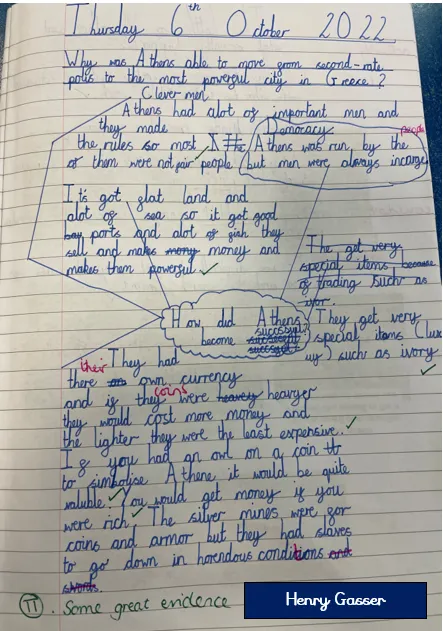 Thursday 6th October 2022
Why was Athens able to move from second-rate
polis to the most powerful city in Greece?
Clever men
Athens had alot of important men and
they made
the rules so most
of them were not fair
people
Democracy
Athens was run, by the people
but men were always incarge
It's got flat land and
alot of sea so it got good
bay ports and alot of fish they
sell and make mony money and
makes them powerful ✓
The get very
special items because
of trading such as
ivor.
How did Athens
become succssful?
They get very
special items (lux
uy) such as ivory
✓
They had
their there own currency
and if they coins were heavery heavyer
they would cost more money and
the lighter they were the least expensive. ✓
If you had an owl on a coin tt
to simbolise Athene it would be quite
valuble. ✓ You would get money if you
were rich. ✓ The silver mines were for
coins and armor but they had slaves
to go down in horendous conditions and
TT. Some great evidence
Henry Gasser